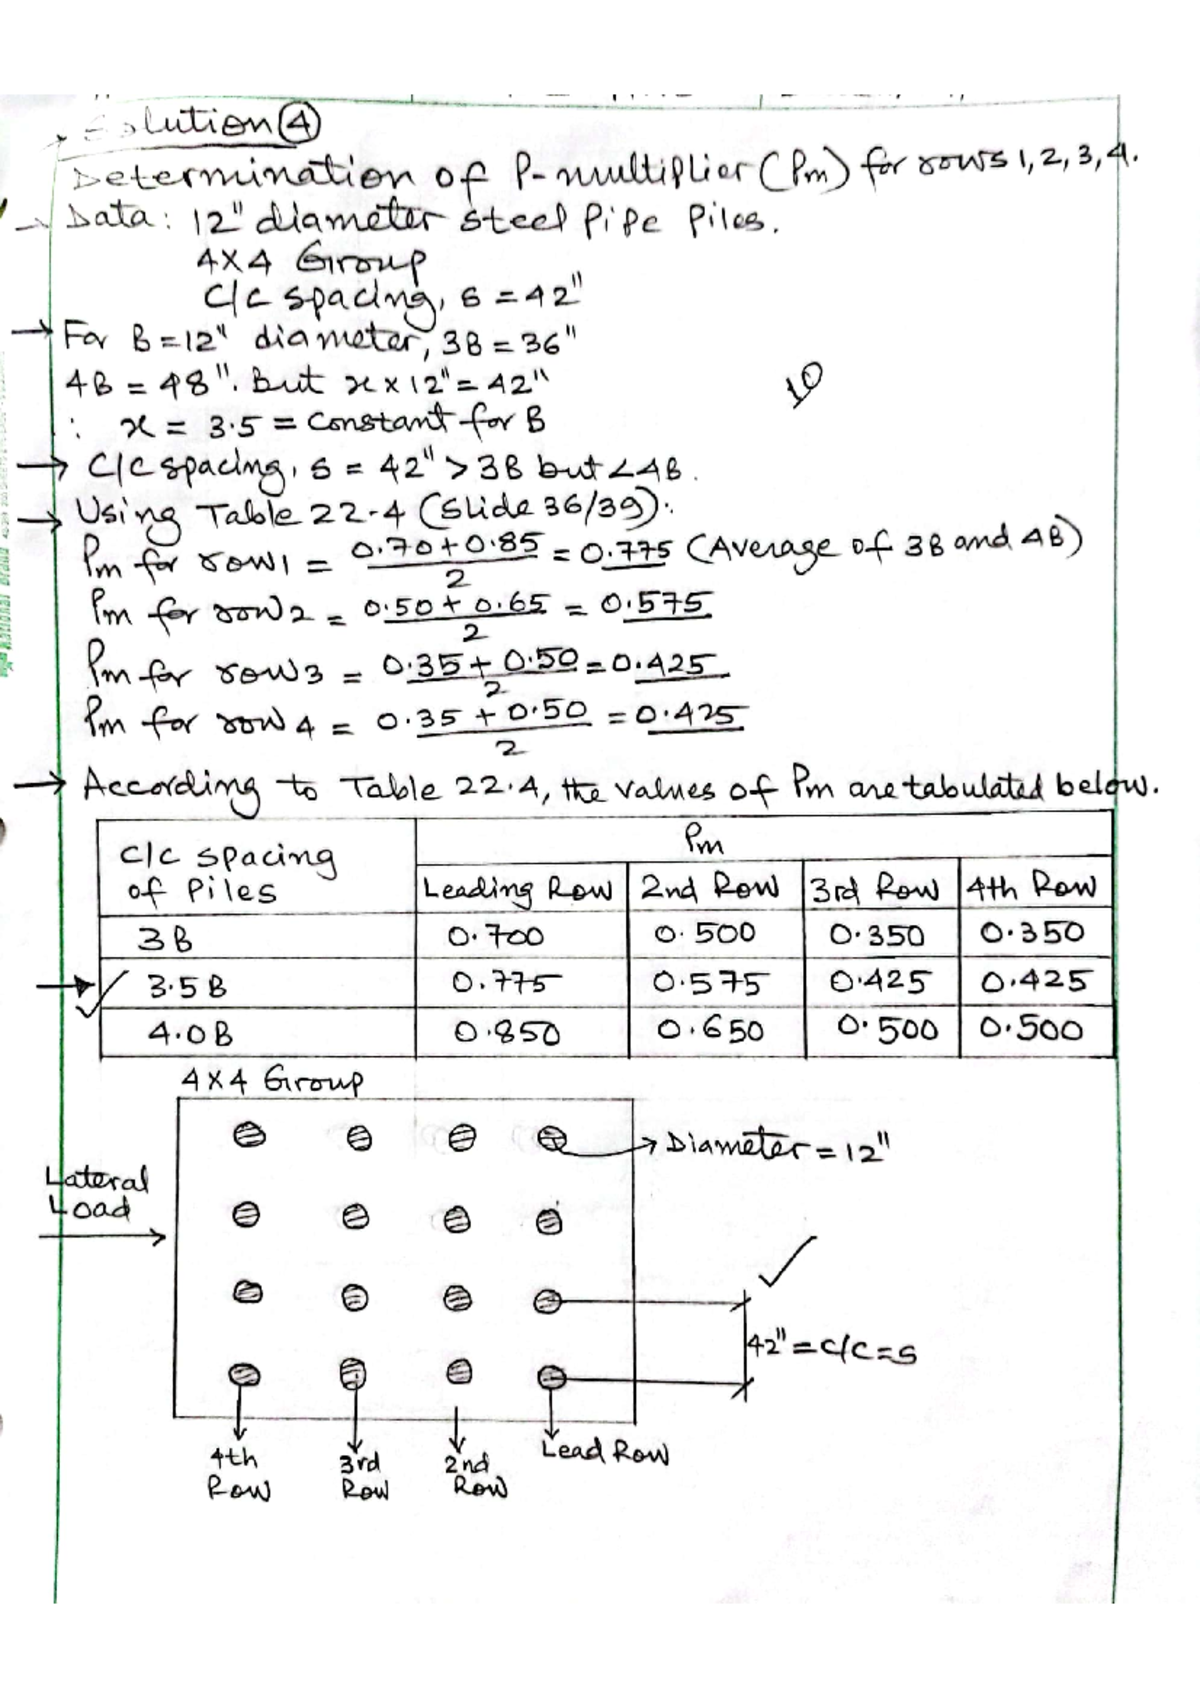 Solution ④
Determination of P-multiplier (Pm) for rows 1, 2, 3, 4.
→ Data: 12" diameter steel Pipe Piles.
4X4 Group
C/C spacing, s = 42"
→ For B = 12" diameter, 3B = 36"
4B = 48". But x x 12" = 42"
∴ x = 3.5 = Constant for B
10
→ C/C spacing, s = 42" > 3B but < 4B.
→ Using Table 22-4 (Slide 36/39):
Pm for row 1 = (0.70 + 0.85)/2 = 0.775 (Average of 3B and 4B)
Pm for row 2 = (0.50 + 0.65)/2 = 0.575
Pm for row 3 = (0.35 + 0.50)/2 = 0.425
Pm for row 4 = (0.35 + 0.50)/2 = 0.425
→ According to Table 22.4, the values of Pm are tabulated below.
C/C spacing of Piles Pm
Leading Row 2nd Row 3rd Row 4th Row
3B 0.700 0.500 0.350 0.350
→ ✓ 3.5B 0.775 0.575 0.425 0.425
4.0B 0.850 0.650 0.500 0.500
4X4 Group
→ Diameter = 12"
Lateral
Load
✓
42" = c/c = s
4th Row
3rd Row
2nd Row
Lead Row